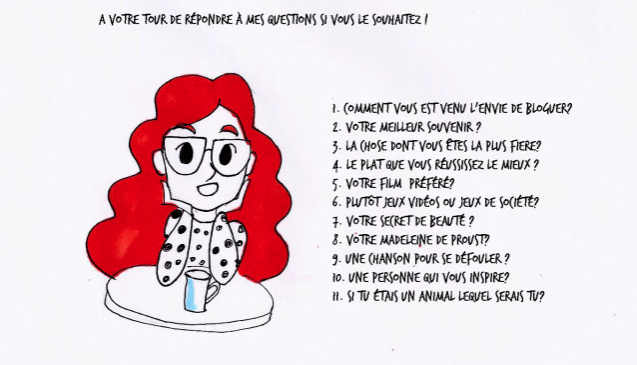 A VOTRE TOUR DE RÉPONDRE À MES QUESTIONS SI VOUS LE SOUHAITEZ !
1. COMMENT VOUS EST VENU L'ENVIE DE BLOGUER?
2. VOTRE MEILLEUR SOUVENIR ?
3. LA CHOSE DONT VOUS ÊTES LA PLUS FIERE?
4. LE PLAT QUE VOUS RÉUSSISSEZ LE MIEUX ?
5. VOTRE FILM PRÉFÉRÉ?
6. PLUTÔT JEUX VIDÉOS OU JEUX DE SOCIÉTÉ?
7. VOTRE SECRET DE BEAUTÉ ?
8. VOTRE MADELEINE DE PROUST?
9. UNE CHANSON POUR SE DÉFOULER ?
10. UNE PERSONNE QUI VOUS INSPIRE?
11. SI TU ÉTAIS UN ANIMAL LEQUEL SERAIS TU?